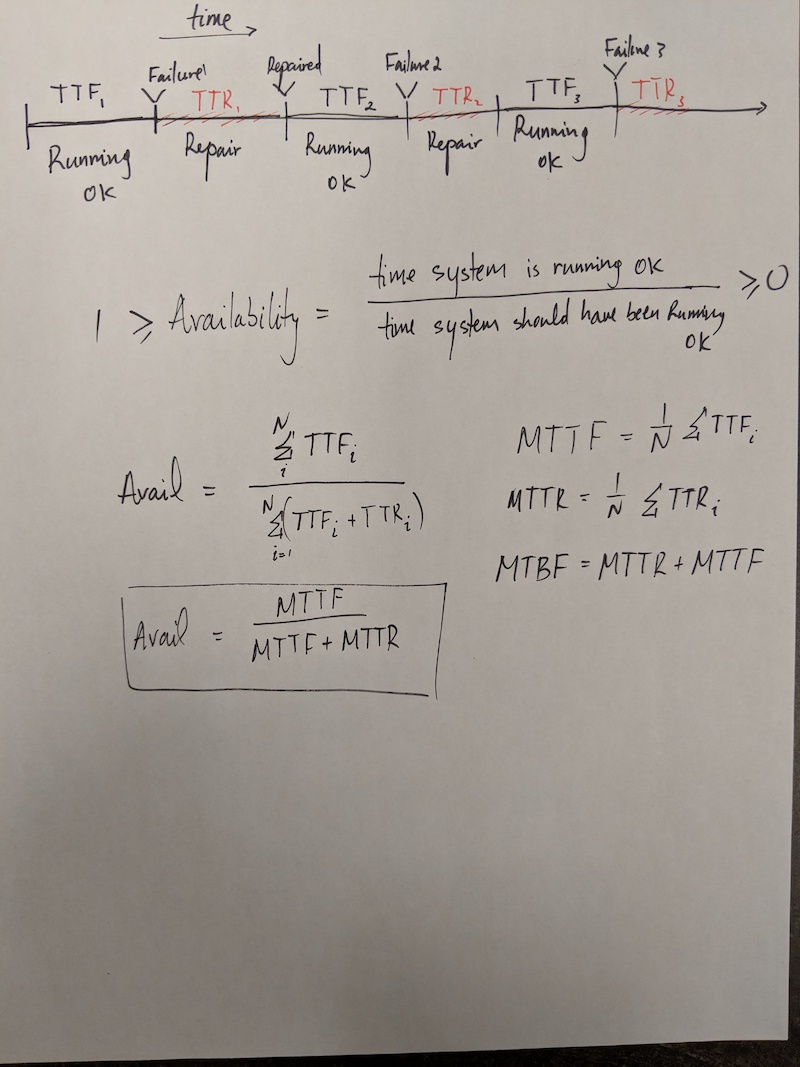 time
Failure1 Repaired Failure2 Failure 3
TTF₁ TTR₁ TTF₂ TTR₂ TTF₃ TTR₃
Running OK Repair Running OK Repair Running OK
1 ⩾ Availability = time system is running OK / time system should have been Running OK ⩾ 0
Avail = Σ_i^N TTF_i / Σ_{i=1}^N (TTF_i + TTR_i)
MTTF = 1/N Σ TTF_i
MTTR = 1/N Σ TTR_i
MTBF = MTTR + MTTF
Avail = MTTF / MTTF + MTTR